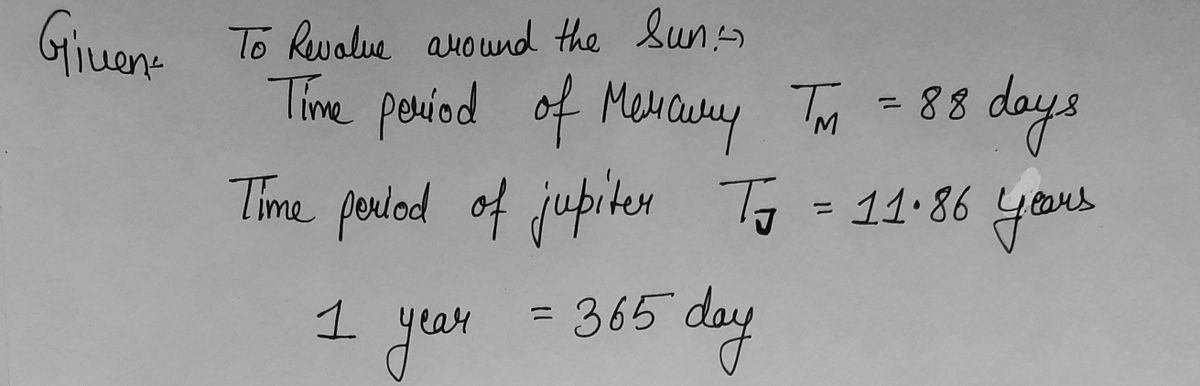 Given:- To Revolve around the Sun :-)
Time period of Mercury T_M = 88 days
Time period of jupiter T_J = 11.86 years
1 year = 365 day